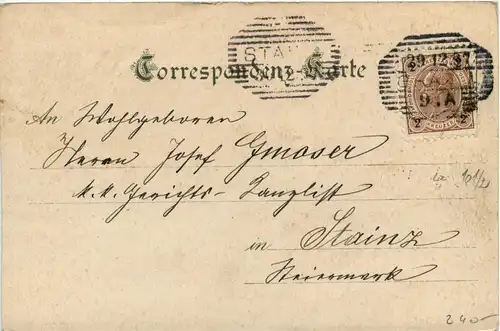 STAI
Correspondenz-Karte
29.12.97
9.A
2 2
An Wohlgeboren
Herrn Josef Gmoser
k. k. Gerichts-Kanzlist
in Stainz
Steiermark
240-